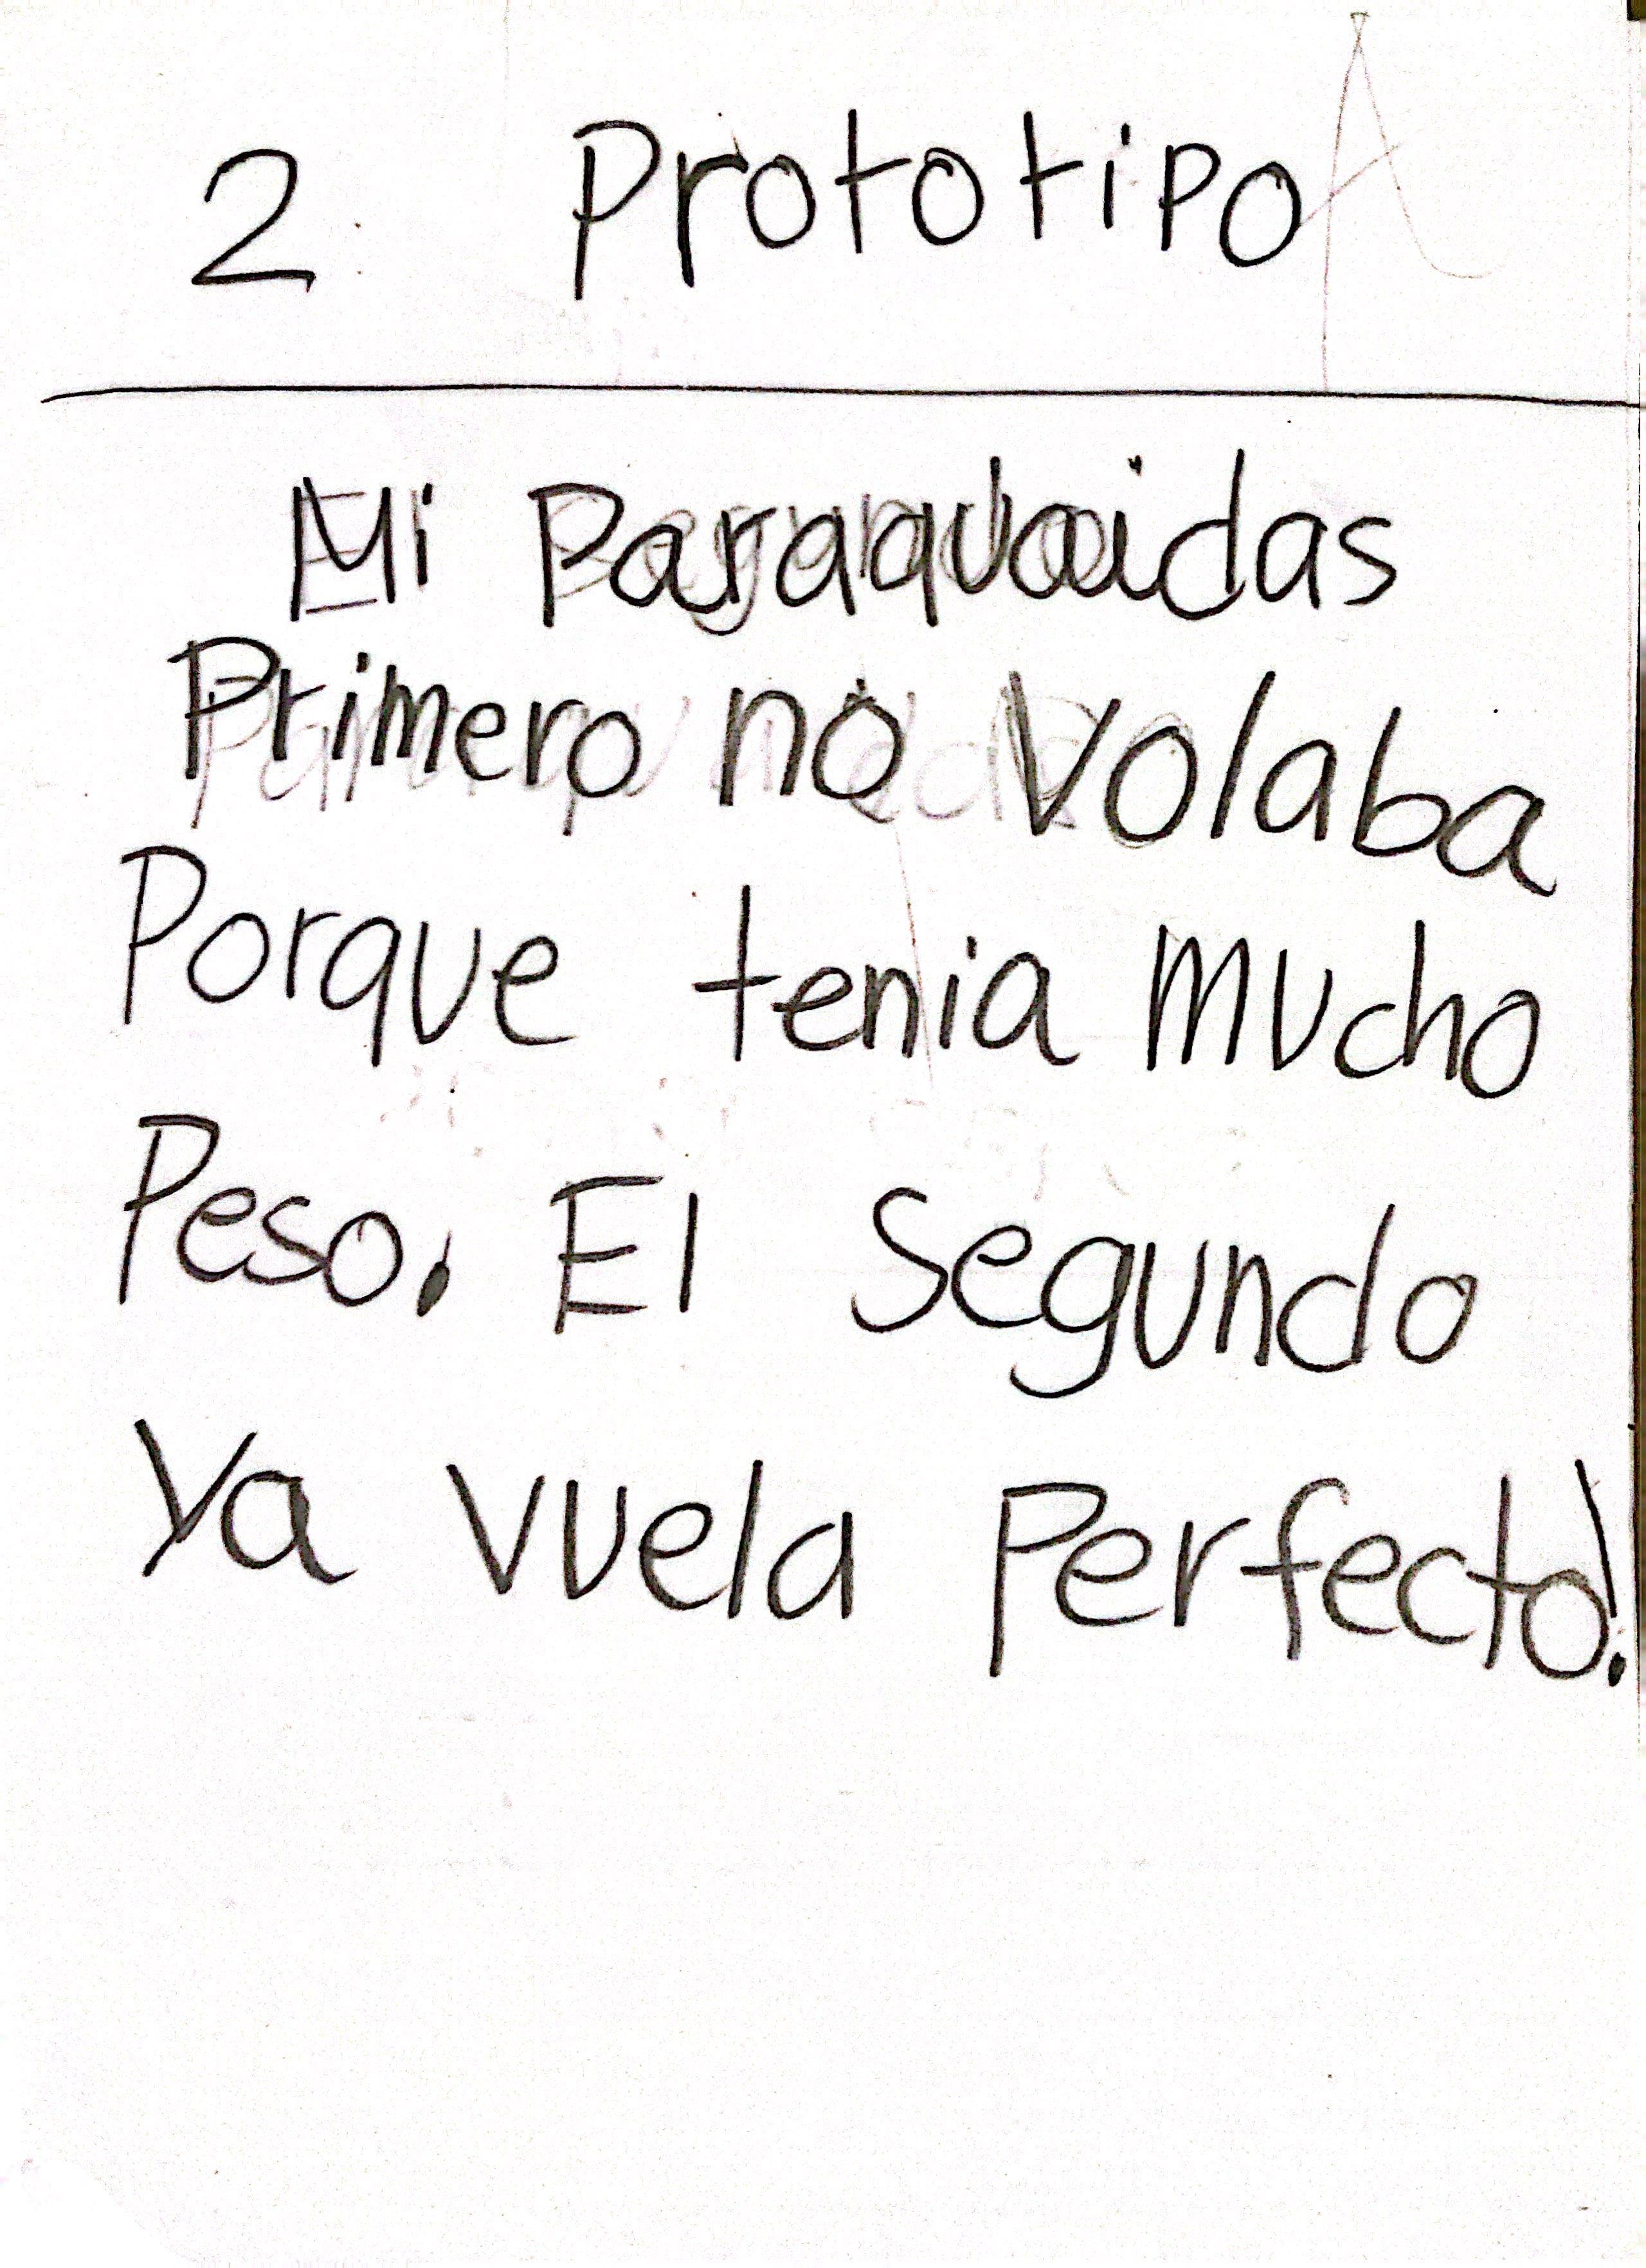 2 Prototipo
Mi Paraquaidas
Primero no Volaba
Porque tenia mucho
Peso. El Segundo
Ya vuela Perfecto!